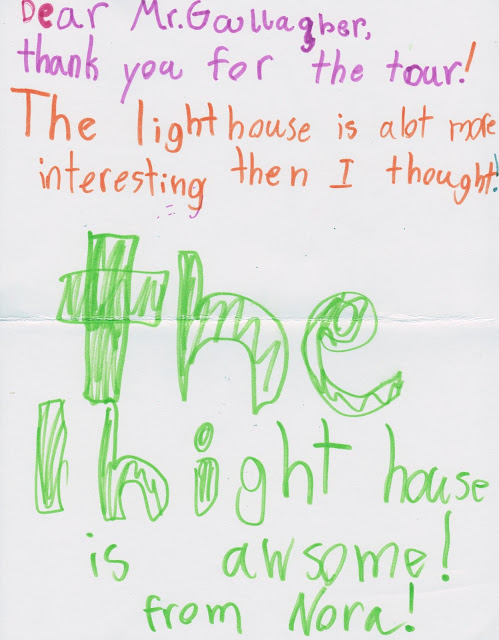 Dear Mr.Gallagher,
thank you for the tour!
The lighthouse is alot more
interesting then I thought!
the
lhight house
is awsome!
from Nora!